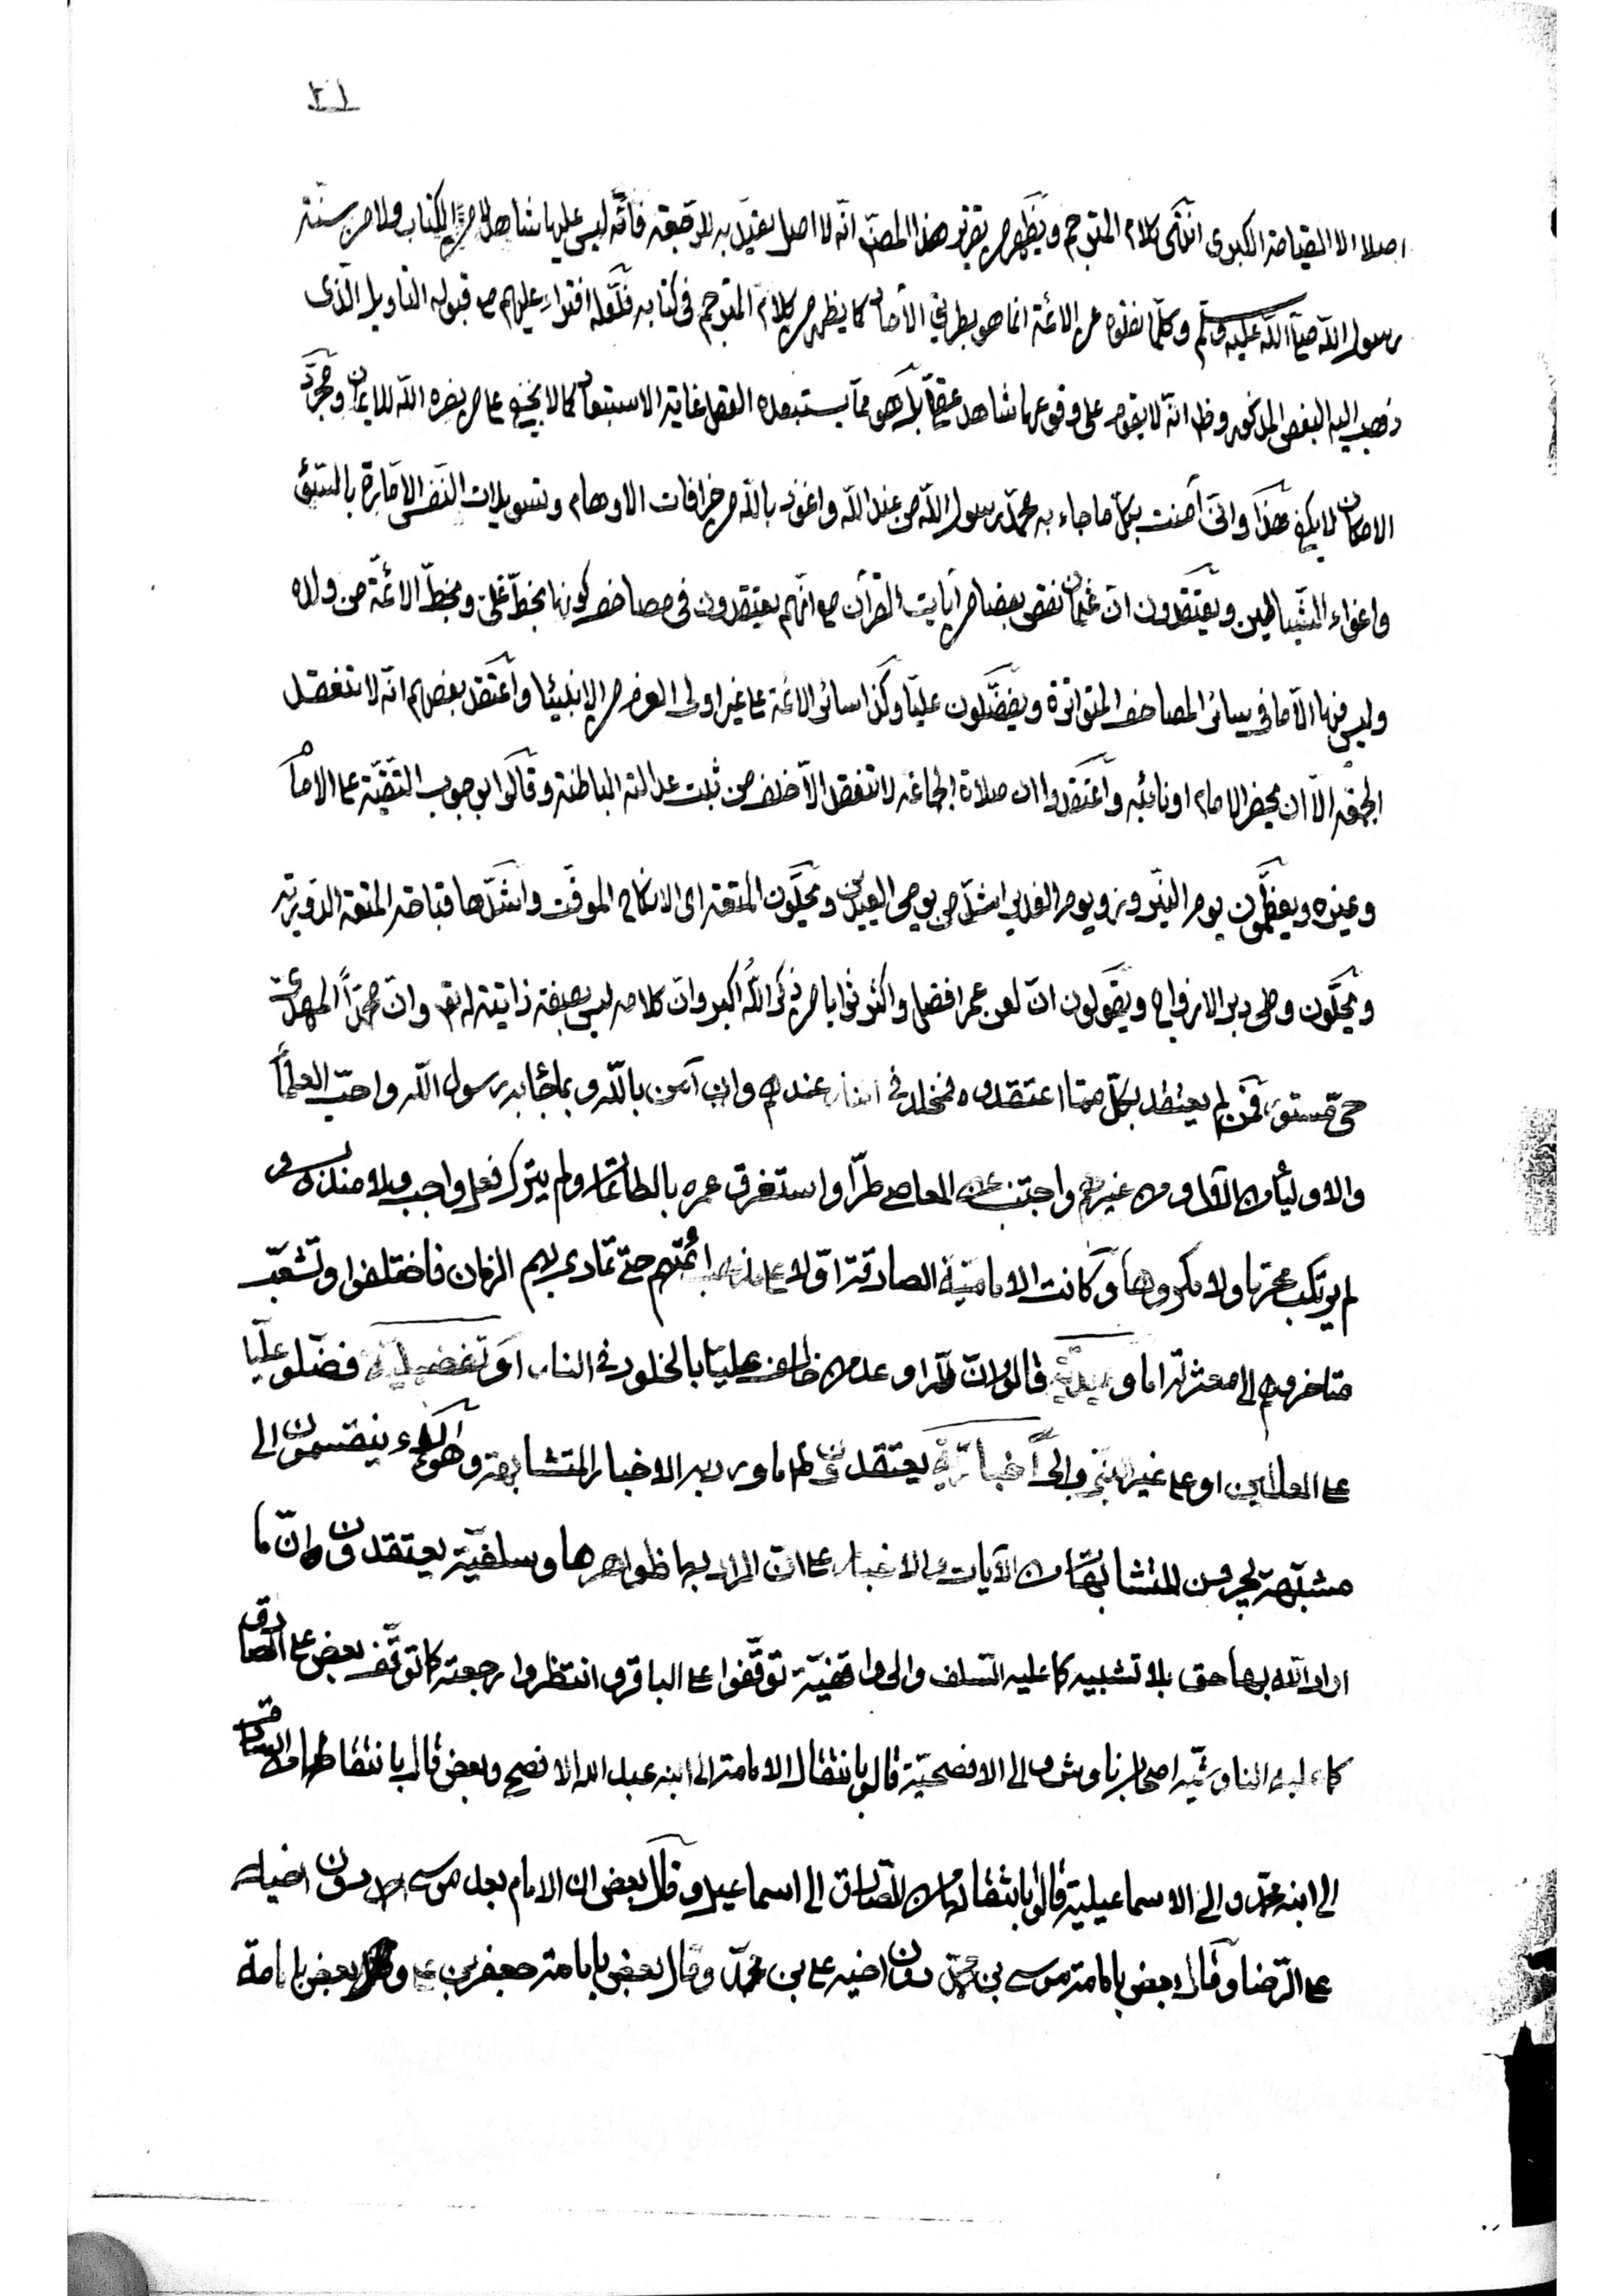 ٢١
اصلا الا القيامة الكبرى انتهى كلام المترجم ويظهر من تقرير هذا المصنّف انّه لا اصل يعتدّ به للرجعة فانّه ليس عليها شاهد لا من الكتاب ولا من سنّة
رسول الله صلى الله عليه وسلم وكلّما نقلوه عن الائمّة انما هو بطريق الآحاد كما يظهر من كلام المترجم في كتابه فلعلّه افتراء عليهم مع قبوله التاويل الذى
ذهب اليه البعض المذكور وظهر انّه لا يقوم على وقوعها شاهد عقلي بل هو ممّا يستبعده العقل غاية الاستبعاد كما لا يخفى على من نوره الله للايمان ومجرّد
الامكان لا يكفى هذا وانّى آمنت بكلّ ما جاء به محمّد رسول الله من عند الله واعوذ بالله من خرافات الاوهام وتسويلات النفس الامّارة بالسّوء
واغواء الشّياطين ويعتقدون انّ عثمان نقص بعضا من آيات القرآن مع انّهم يعتقدون في مصاحف كونها بخطّ علىّ وبخطّ الائمّة من ولده
وليس فيها الّا ما فى سائر المصاحف المتواترة ويفضّلون عليّا وكذا سائر الائمّة على غير اولى العزم من الانبيئا واعتقد بعضهم انّه لا تنعقد
الجمعة الّا ان يحضر الامام او نائبه واعتقدوا ان صلاة الجماعة لا تنعقد الّا خلف من ثبت عدالته الباطنة وقالوا بوجوب التقيّة على الامام
وغيره ويعظّمون يوم النيروز ويوم الغدير اشدّ من يومى العيدين ويحلّون المتعة اى الانكاح الموقّت واشدّها قباحة المتعة الدّورية
ويحلّون وطى دبر الازواج ويقولون انّ لعن عمر افضل واكثر ثوابا من ذكر الله اكبر وانّ كلامه ليس بصفة ذاتية له تع وانّ محمّداً المهدىّ
حىّ مستور فمن لم يعتقد بكلّ ممّا اعتقدوه فمخلد في النار عندهم وان آمن بالله وبما جئا به رسول الله واحبّ العلمآ
والاوليآء من الآل ومن غيرهم واجتنب عن المعاصى طرّا واستغرق عمره بالطاعات ولم يترك فعل واجب ولا مندوب و
لم يرتكب محرّما ولا مكروها وكانت الاماميّة الصادقة اوّلا على مذهب ائمّتهم حتّى تمادى بهم الزمان فاختلفوا وتشعّب
متاخروهم الى معتزلة اما وعيديّة قالوا انّ لله اوعد من خالف عليّا بالخلود في النار او تفضيليّة فضّلو عليّا
على العالمين او على غير النبى والى اخباريّة يعتقدون ظاهر ما ورد به الاخبار المتشابهة وهؤلاء ينقسمون الى
مشبّهة يجرون المتشابهات من الآيات والاخبار على انّ المراد بها ظواهرها وسلفيّة يعتقدون انّ ما
اراد الله بها حق بلا تشبيه كما عليه السّلف والى واقفيّة توقّفوا على الباقر وانتظروا رجعته كما توقّف بعض على الصادق
كما عليه الناوسيّه اصحاب ناوش والى الافصحيّة قالوا بانتقال الامامة الى ابنه عبد الله الافصح وبعض قال بانتقالها من الصادق
الى ابنه محمّد والى الاسماعيلية قالوا بانتقالها من الصّادق الى اسماعيل وقال بعض ان الامام بعد موسى دون اخيه
على الرّضا وقال بعض بامامة موسى بن محمّد دون اخيه على بن محمّد وقال بعض بامامة جعفر بن على وقال بعض بامامة